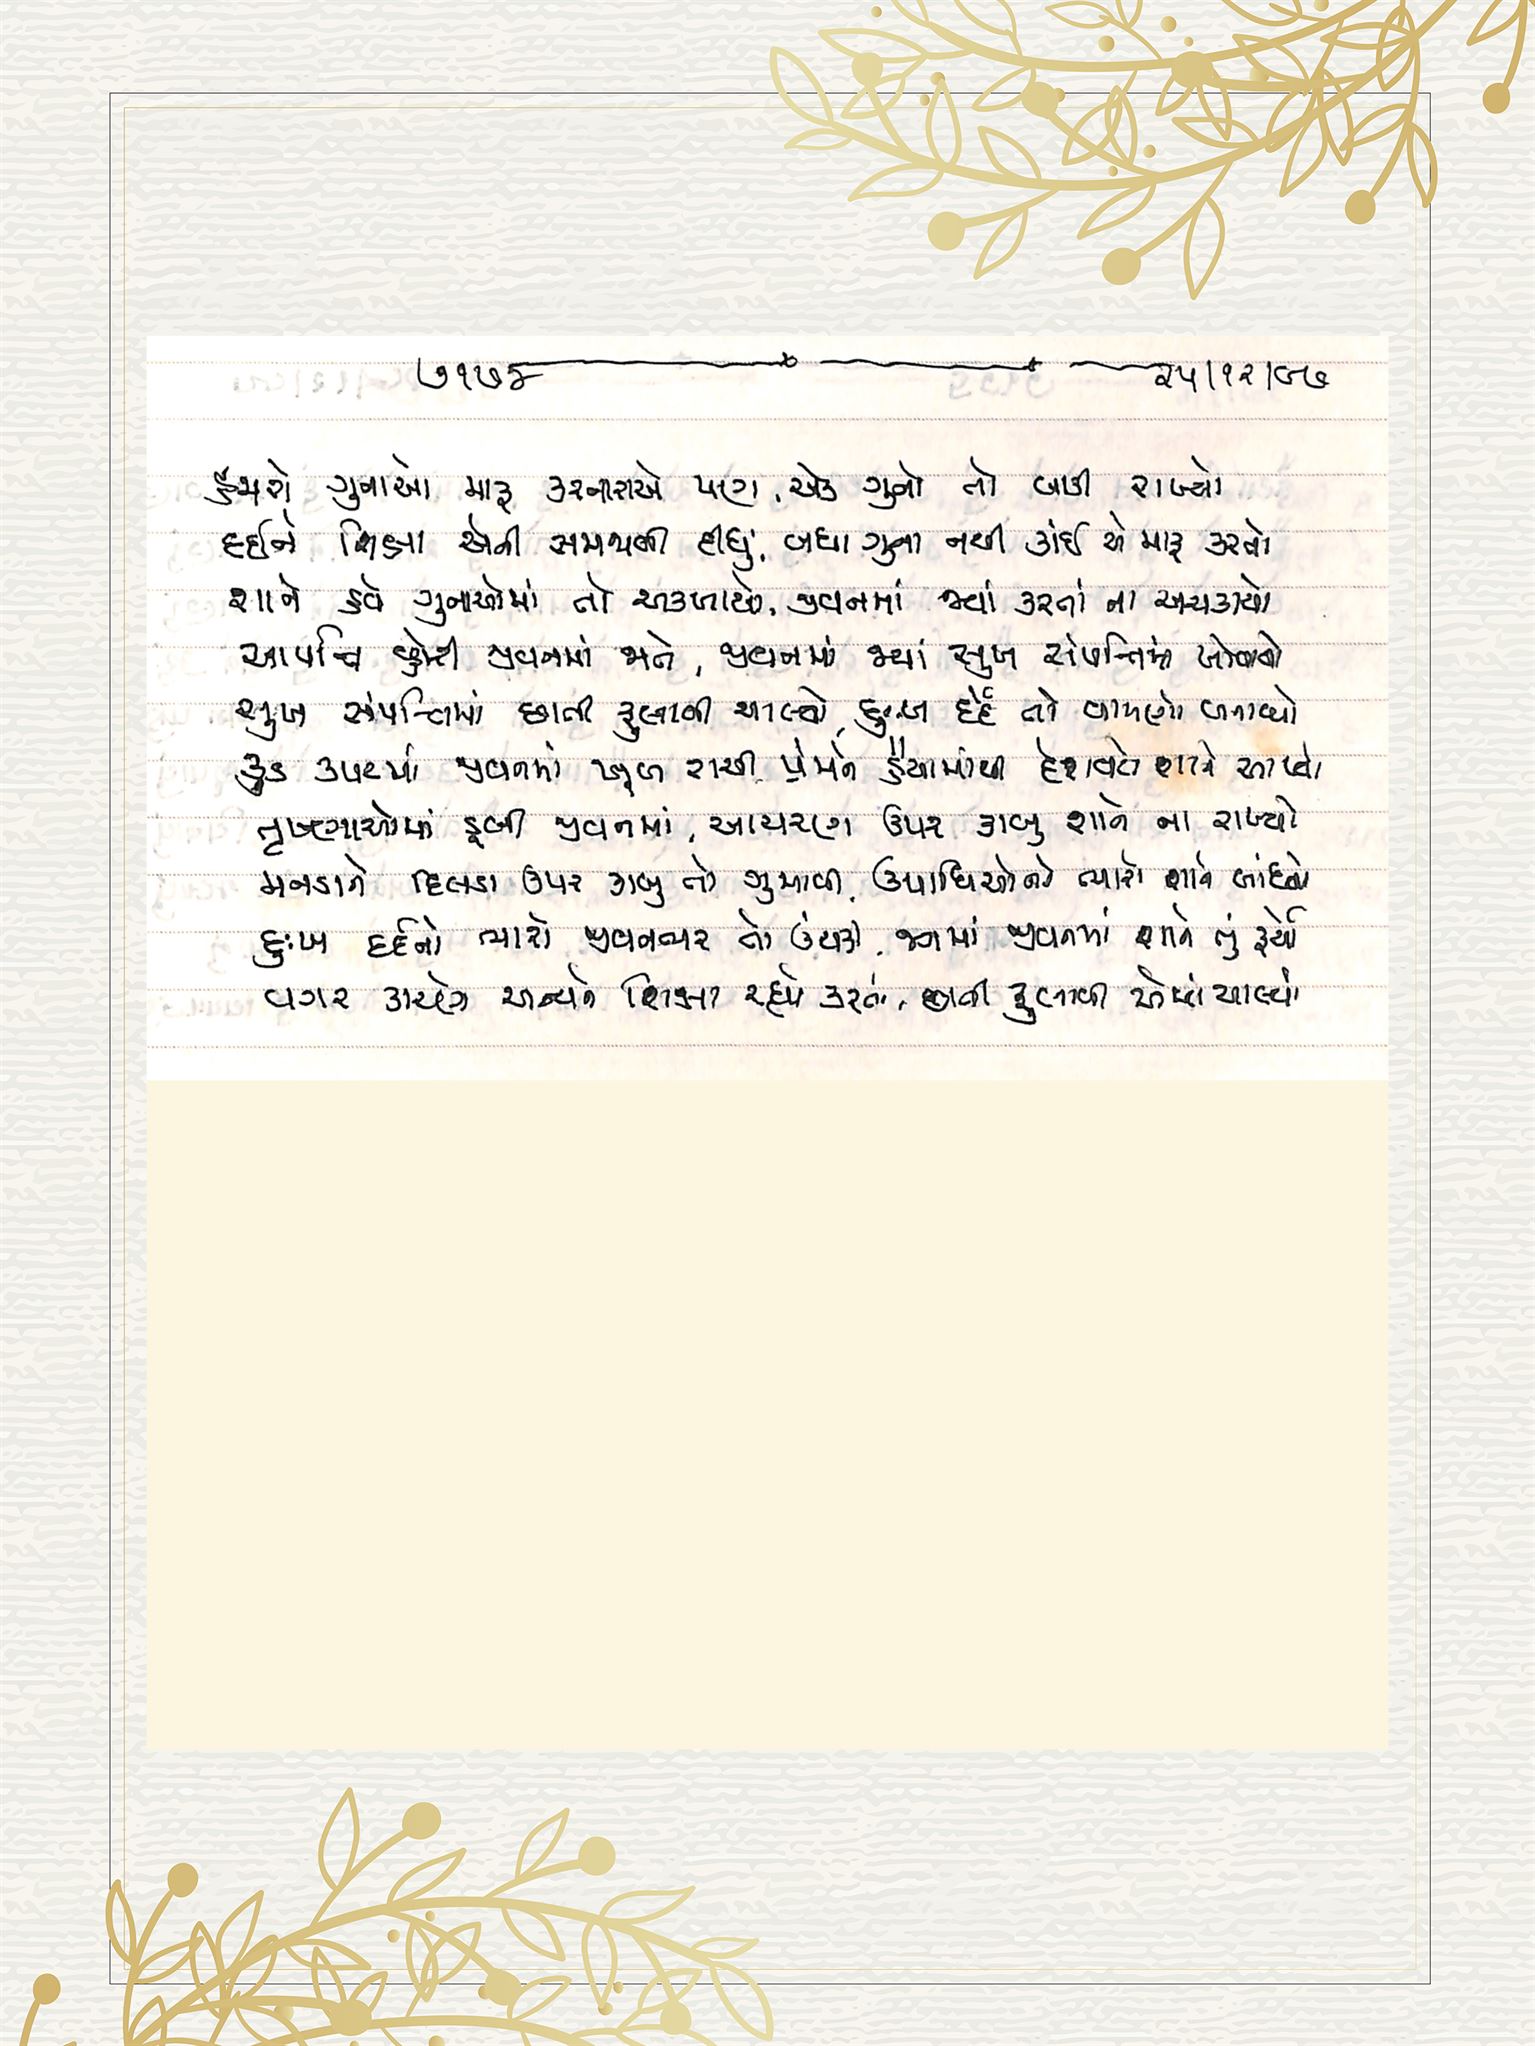 ૭૧૭૬ ૨૫/૧૨/૯૭
હજારો ગુનાઓ માફ કરનારાએ પણ, એક ગુનો તો બાકી રાખ્યો
દર્દને શિક્ષા એની સમજી લીધું, બધા ગુના નથી કાંઈ એ માફ કરતો
શાને હવે ગુનાઓમાં તો અકળાયો, જીવનમાં જ્યાં કરતાં ના અચકાયો
આપત્તિ જીવનમાં જીવનમાં જ્યાં સુખ સંપત્તિમાં ખોવાયો
સુખ સંપત્તિમાં છાતી ફુલાવી ચાલ્યો, દુઃખ દર્દે તો વામણો બનાવ્યો
કુડ કપટમાં જીવનમાં ખૂબ રાચી પ્રેમને હૈયામાંથી દેશવટો શાને આપ્યો
તૃષ્ણાઓમાં ડૂબી જીવનમાં, આચરણ ઉપર કાબુ શાને ના રાખ્યો
મનડાને દિલડા ઉપર કાબુ તો ગુમાવી, ઉપાધિઓનો ભારો શાને બાંધ્યો
દુઃખ દર્દનો ભારો જીવનભર તો ઉંચકી, જગમાં જીવનમાં શાને તું ફર્યો
વગર કારણે અન્યને શિક્ષા રહ્યો કરતો, છાતી ફુલાવી એમાં ચાલ્યો